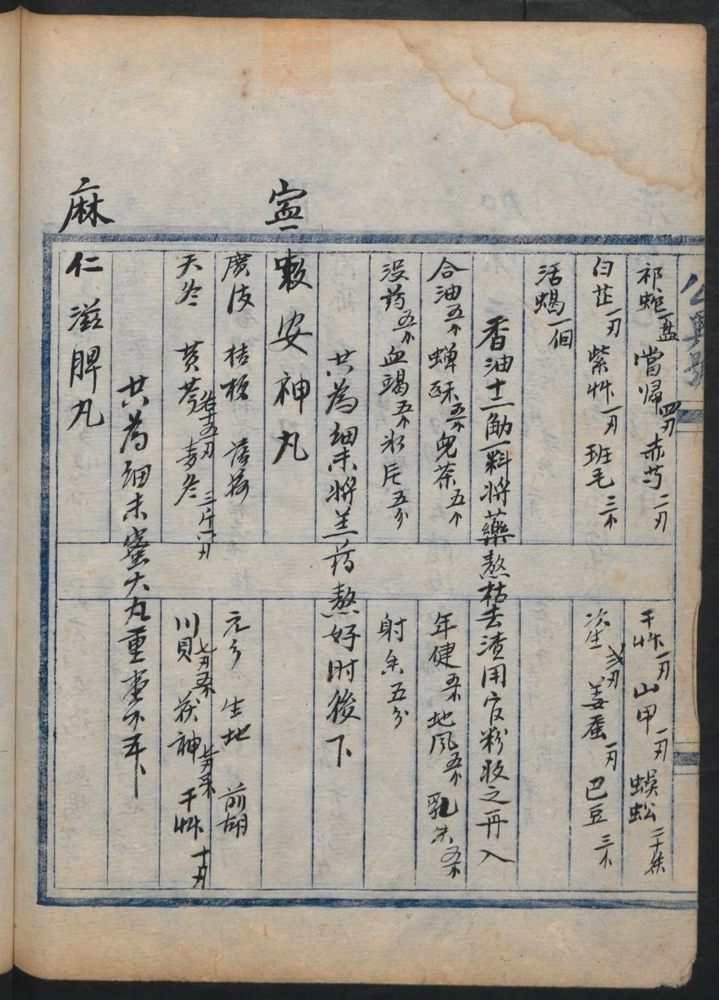 祁蛇一盘 當帰四刃 赤芍二刃
干艸一刃 山甲一刃 蜈蚣二十条
白芷一刃 紫艸一刃 班毛三个
姜蚕一刃 巴豆三个
活蝎一個
香油十二觔一料将藥熬枯去渣用官粉收之再入
合油五个 蝉酥五个 皃茶五个
年健五个 地风五个 乳香五个
没药五个 血竭五个 氷片五分
射香五分
共為细末将羔药熬好时後下
寍𠻳安神丸
廣皮 桔梗
元参 生地 前胡
天冬 黄芩 麦冬三斤六刃
川贝 茯神 干艸十刃
共為细末蜜大丸重壹个五卜
麻仁滋脾丸